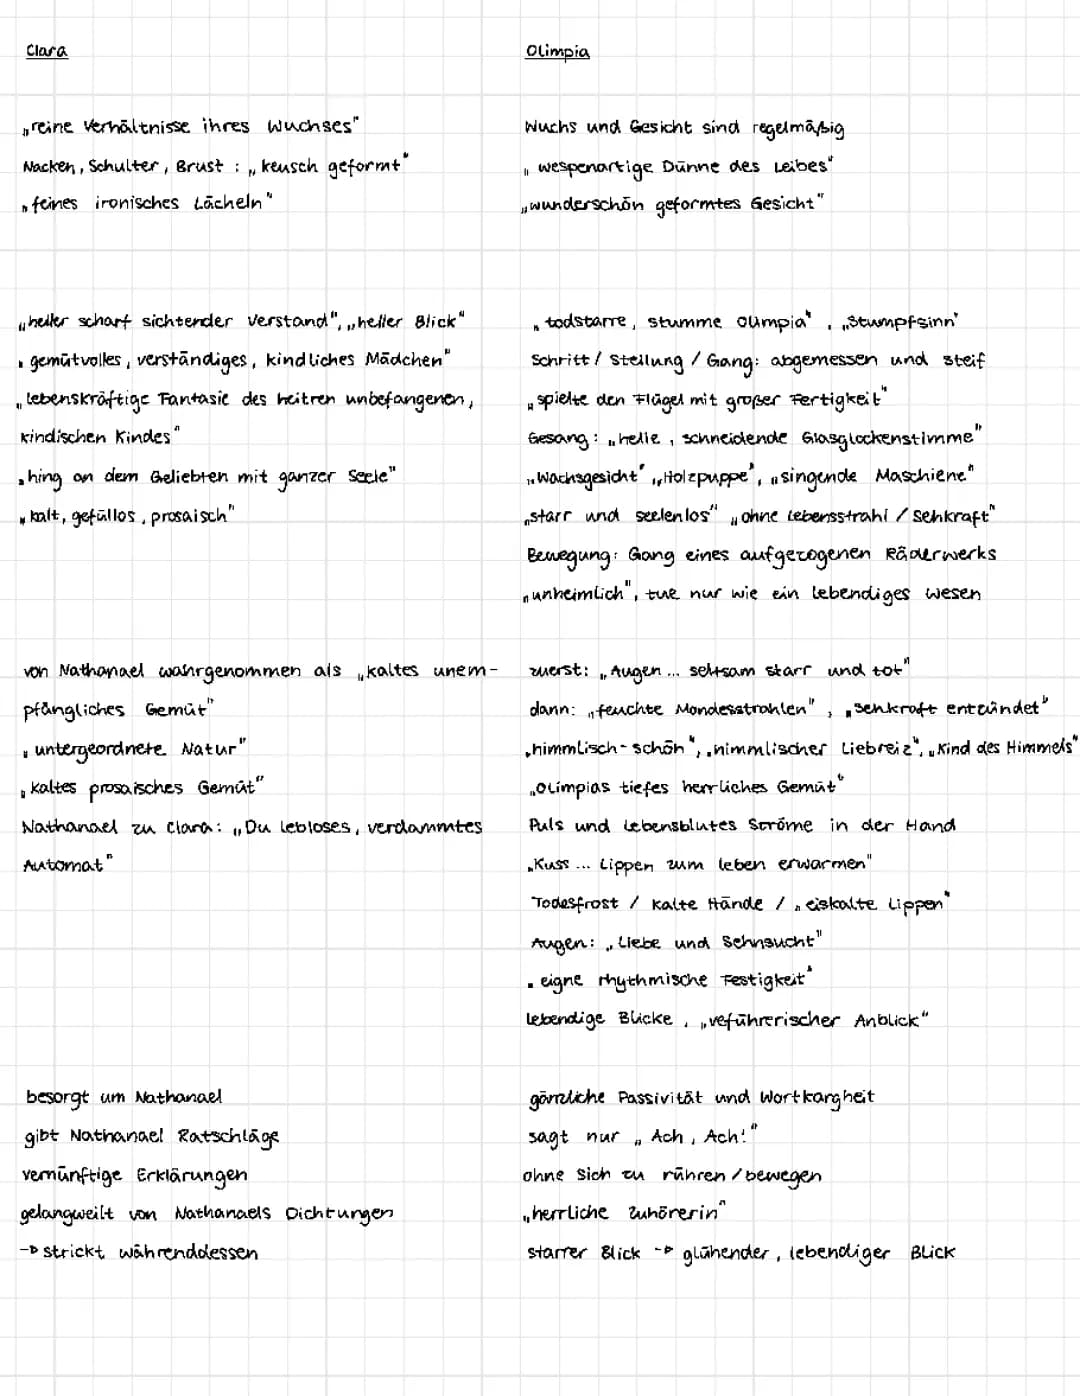 Clara
„reine Verhältnisse ihres Wuchses"
Nacken, Schulter, Brust : „keusch geformt"
„feines ironisches Lächeln"
„heller scharf sichtender Verstand", „heller Blick"
„gemütvolles, verständiges, kindliches Mädchen"
„lebenskräftige Fantasie des heitren unbefangenen,
kindischen Kindes"
„hing an dem Geliebten mit ganzer Seele"
„kalt, gefüllos, prosaisch"
von Nathanael wahrgenommen als „kaltes unem-
pfängliches Gemüt"
„untergeordnete Natur"
„kaltes prosaisches Gemüt"
Nathanael zu Clara: „Du lebloses, verdammtes
Automat"
besorgt um Nathanael
gibt Nathanael Ratschläge
vernünftige Erklärungen
gelangweilt von Nathanaels Dichtungen
-> strickt währenddessen
Olimpia
Wuchs und Gesicht sind regelmäßig
„wespenartige Dünne des Leibes"
„wunderschön geformtes Gesicht"
„todstarre, stumme Olimpia", „Stumpfsinn"
Schritt / Stellung / Gang: abgemessen und steif
„spielte den Flügel mit großer Fertigkeit"
Gesang: „helle, schneidende Glasglockenstimme"
„Wachsgesicht", „Holzpuppe", „singende Maschiene"
„starr und seelenlos" „ohne Lebensstrahl / Sehkraft"
Bewegung: Gang eines aufgezogenen Räderwerks
„unheimlich", tue nur wie ein lebendiges Wesen
zuerst: „Augen ... seltsam starr und tot"
dann: „feuchte Mondesstrahlen", „Sehkraft entzündet"
„himmlisch-schön", „himmlischer Liebreiz", „Kind des Himmels"
„Olimpias tiefes herrliches Gemüt"
Puls und Lebensblutes Ströme in der Hand
„Kuss ... Lippen zum leben erwarmen"
Todesfrost / kalte Hände / „eiskalte Lippen"
Augen: „Liebe und Sehnsucht"
„eigne rhythmische Festigkeit"
lebendige Blicke, „veführerischer Anblick"
gänzliche Passivität und Wortkargheit
sagt nur „Ach, Ach!"
ohne sich zu rühren / bewegen
„herrliche Zuhörerin"
starrer Blick -> glühender, lebendiger Blick